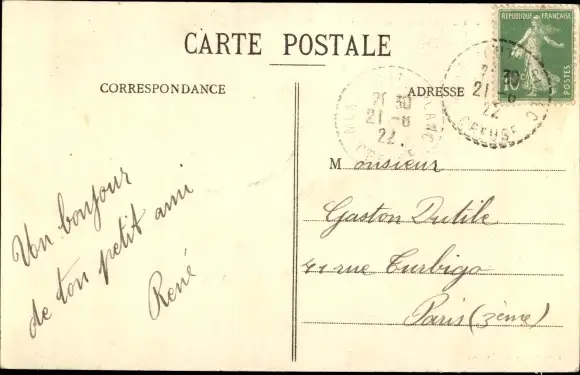 CARTE POSTALE
CORRESPONDANCE
ADRESSE
RÉPUBLIQUE FRANÇAISE
10c
POSTES
21 30
21 - 8
22
CREUSE
21 - 8
22
CREUSE
Un bonjour
de ton petit ami
René
Monsieur
Gaston Dutile
rue Turbigo
Paris (3ème)